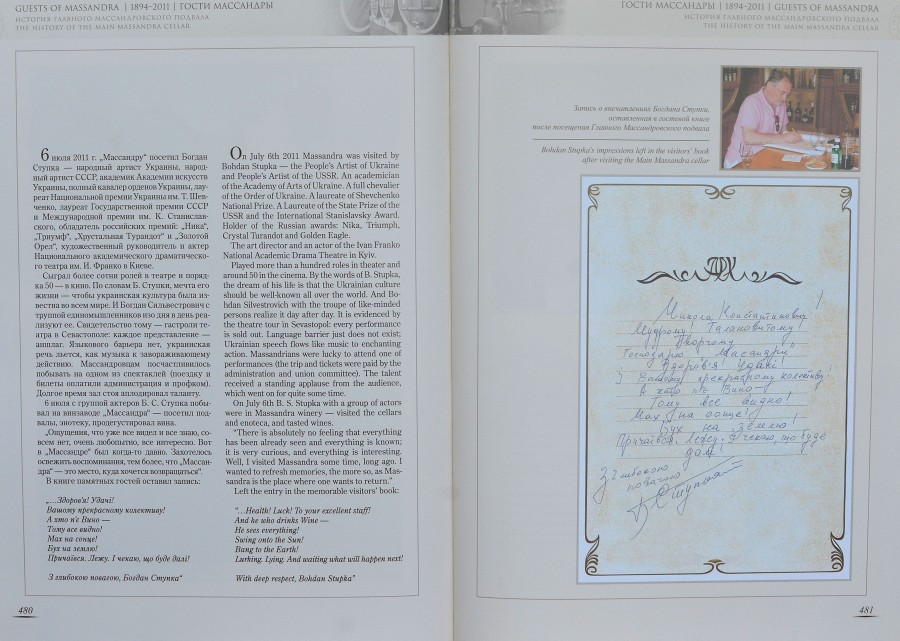 GUESTS OF MASSANDRA | 1894–2011 | ГОСТИ МАССАНДРЫ
ИСТОРИЯ ГЛАВНОГО МАССАНДРОВСКОГО ПОДВАЛА
THE HISTORY OF THE MAIN MASSANDRA CELLAR
6 июля 2011 г. „Массандру" посетил Богдан
Ступка — народный артист Украины, народ-
ный артист СССР, академик Академии искусств
Украины, полный кавалер орденов Украины, лау-
реат Национальной Премии Украины им. Т. Шев-
ченко, лауреат Государственной премии СССР
и Международной премии им. К. Станислав-
ского, обладатель российских премий: „Ника",
„Триумф", „Хрустальная Турандот" и „Золотой
Орел", художественный руководитель и актер
Национального академического драматическо-
го театра им. И. Франко в Киеве.
Сыграл более сотни ролей в театре и поряд-
ка 50 — в кино. По словам Б. Ступки, мечта его
жизни — чтобы украинская культура была из-
вестна во всем мире. И Богдан Сильвестрович с
труппой единомышленников изо дня в день реа-
лизуют ее. Свидетельство тому — гастроли те-
атра в Севастополе: каждое представление —
аншлаг. Языкового барьера нет, украинская
речь льется, как музыка к завораживающему
действию. Массандровцам посчастливилось
побывать на одном из спектаклей (поездку и
билеты оплатили администрация и профком).
Долгое время зал стоя аплодировал таланту.
6 июля с группой актеров Б. С. Ступка побы-
вал на винзаводе „Массандра" — посетил под-
валы, энотеку, продегустировал вина.
"Ощущения, что уже все видел и все знаю, со-
всем нет, очень любопытно, все интересно. Вот
в „Массандре" был когда-то давно. Захотелось
освежить воспоминания, тем более, что „Массан-
дра" — это место, куда хочется возвращаться".
В книге памятных гостей оставил запись:
„...Здоров'я! Удачі!
Вашому прекрасному колективу!
А хто п'є Вино —
Тому все видно!
Мах на сонце!
Бух на землю!
Причаївся. Лежу. І чекаю, що буде далі!
З глибокою повагою, Богдан Ступка"
On July 6th 2011 Massandra was visited by
Bohdan Stupka — the People's Artist of Ukraine
and People's Artist of the USSR. An academician
of the Academy of Arts of Ukraine. A full chevalier
of the Order of Ukraine. A laureate of Shevchenko
National Prize. A Laureate of the State Prize of the
USSR and the International Stanislavsky Award.
Holder of the Russian awards: Nika, Triumph,
Crystal Turandot and Golden Eagle.
The art director and an actor of the Ivan Franko
National Academic Drama Theatre in Kyiv.
Played more than a hundred roles in theater and
around 50 in the cinema. By the words of B. Stupka,
the dream of his life is that the Ukrainian culture
should be well-known all over the world. And Bo-
hdan Silvestrovich with the troupe of like-minded
persons realize it day after day. It is evidenced by
the theatre tour in Sevastopol: every performance
is sold out. Language barrier just does not exist;
Ukrainian speech flows like music to enchanting
action. Massandrians were lucky to attend one of
performances (the trip and tickets were paid by the
administration and union committee). The talent
received a standing applause from the audience,
which went on for quite some time.
On July 6th B. S. Stupka with a group of actors
were in Massandra winery — visited the cellars
and enoteca, and tasted wines.
"There is absolutely no feeling that everything
has been already seen and everything is known;
it is very curious, and everything is interesting.
Well, I visited Massandra some time, long ago. I
wanted to refresh memories, the more so, as Mas-
sandra is the place where one wants to return."
Left the entry in the memorable visitors' book:
"...Health! Luck! To your excellent staff!
And he who drinks Wine —
He sees everything!
Swing onto the Sun!
Bang to the Earth!
Lurking. Lying. And waiting what will happen next!
With deep respect, Bohdan Stupka"
480
ГОСТИ МАССАНДРЫ | 1894–2011 | GUESTS OF MASSANDRA
ИСТОРИЯ ГЛАВНОГО МАССАНДРОВСКОГО ПОДВАЛА
THE HISTORY OF THE MAIN MASSANDRA CELLAR
Запись о впечатлениях Богдана Ступки,
оставленная в гостевой книге
после посещения Главного Массандровского подвала
Bohdan Stupka's impressions left in the visitors' book
after visiting the Main Massandra cellar
Микола Константинович!
Мудрому! Талановитому!
Творчому
Господарю „Масандри"
Здоров'я Удачі!
І Вашому прекрасному колективу!
А хто п'є Вино —
Тому все видно!
Мах на сонце!
Бух на землю!
Причаївся. Лежу. І чекаю, що буде
далі!
З глибокою
повагою
Б Ступка
481